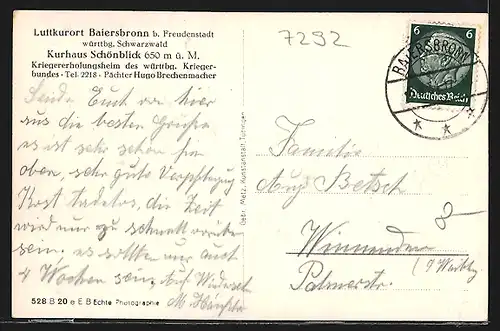 Luftkurort Baiersbronn b. Freudenstadt
württbg. Schwarzwald
Kurhaus Schönblick 650 m ü. M.
Kriegererholungsheim des württbg. Krieger-
bundes - Tel. 2218 - Pächter Hugo Brechenmacher
7292
6 6
Deutsches Reich
BAIERSBRONN
Sende Euch von hier
aus die besten Grüße
es ist sehr schön hier
oben, sehr gute Verpflegung
Kost tadellos, die Zeit
wird nur zu schnell vorüber
sein, es sollten nur auch
4 Wochen sein. Auf Wiederseh
M.
Gebr. Metz, Kunstanstalt, Tübingen
Familie
Aug. Betsch
Winnenden
Palmerstr.
528 B 20 e E B Echte Photographie